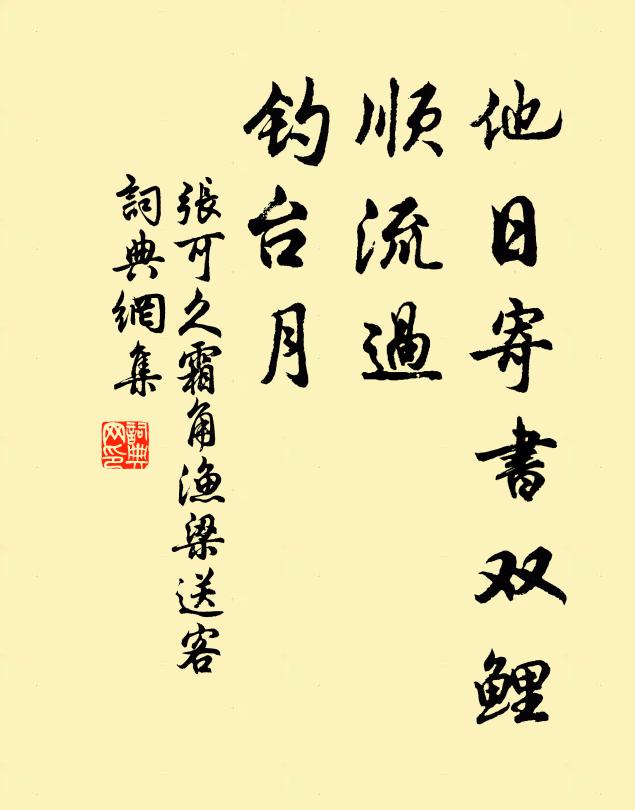 他日寄书双鲤
顺流過
钓台月
張可久霜角漁梁送客
詞典網集
詞典網印